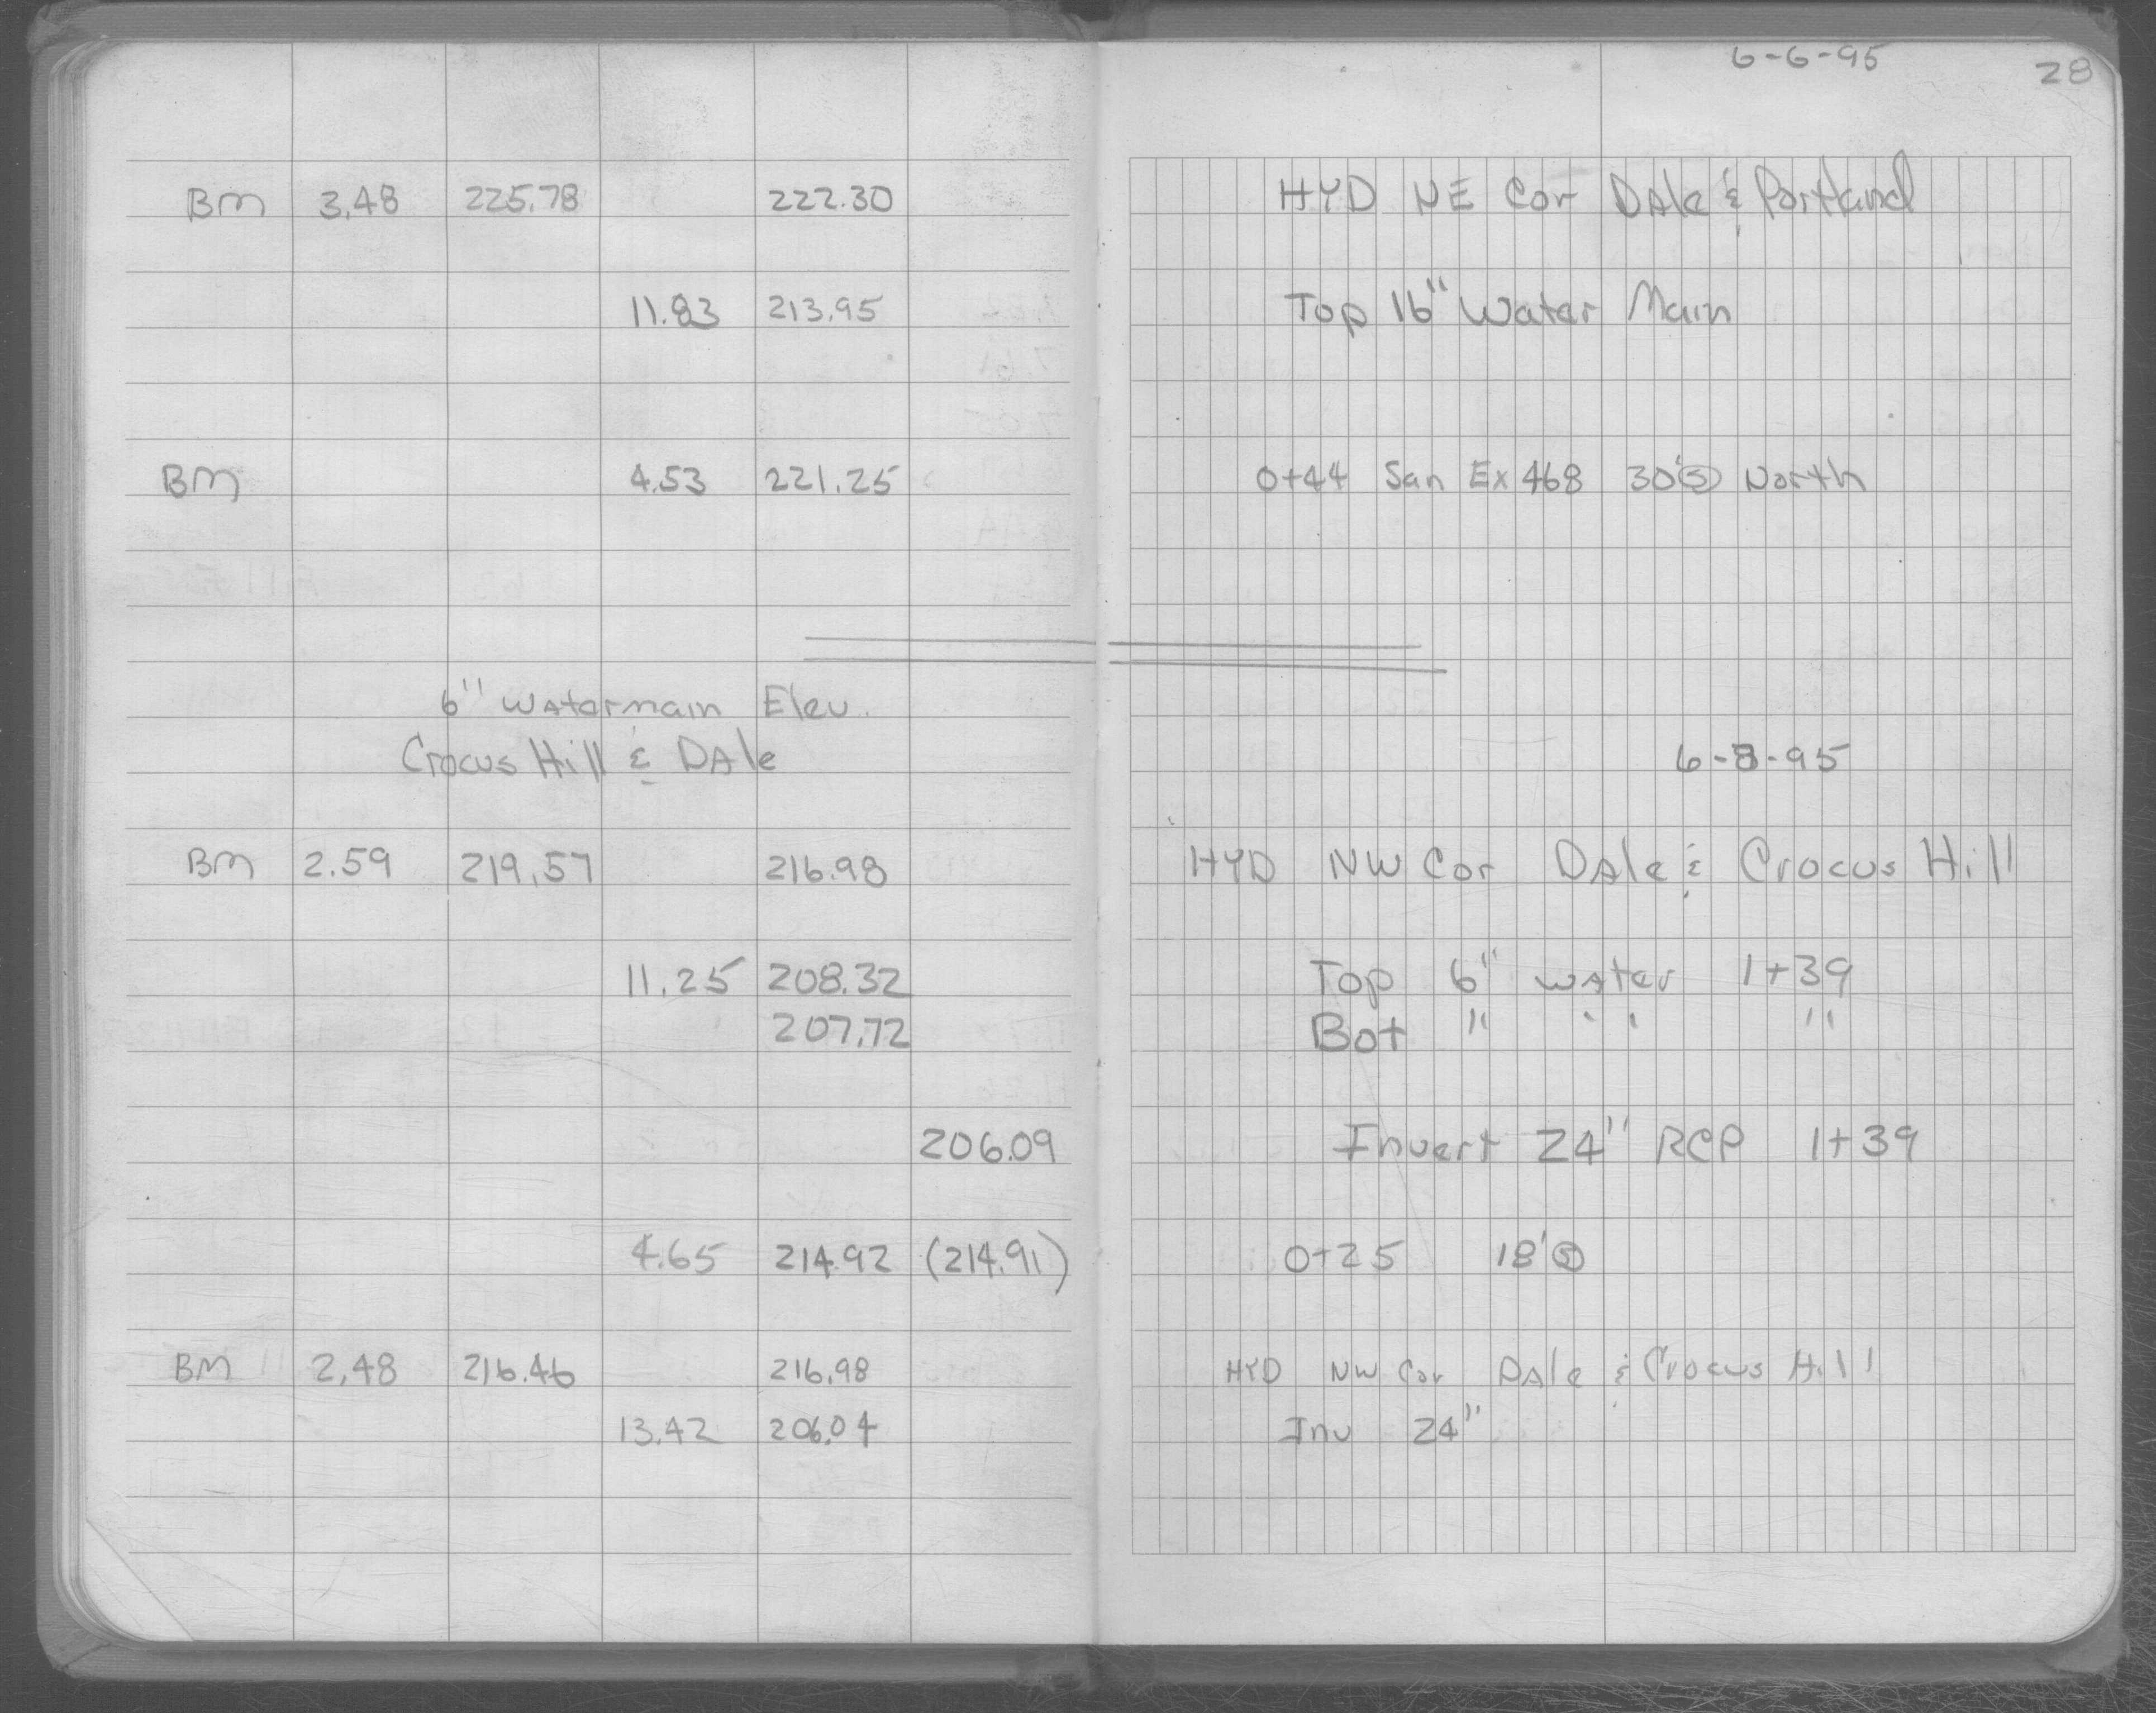 6-6-95 28
BM 3.48 225.78 222.30 HYD NE Cor DAle & Portland
11.83 213.95 Top 16" Water Main
BM 4.53 221.25 0+44 San Ex 468 30' North
6" Watermain Elev.
Crocus Hill & DAle 6-8-95
BM 2.59 219.57 216.98 HYD NW Cor DAle & Crocus Hill
11.25 208.32 Top 6" water 1+39
207.72 Bot " " "
206.09 Invert 24" RCP 1+39
4.65 214.92 (214.91) 0+25 18'
BM 2.48 216.46 216.98 HYD NW Cor DAle & Crocus Hill
13.42 206.04 Inv 24"